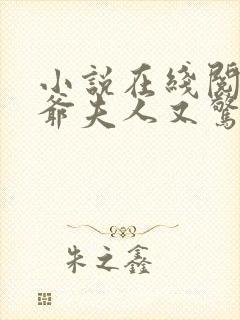 小說在綫閱
爺夫人又驚
朱之鑫